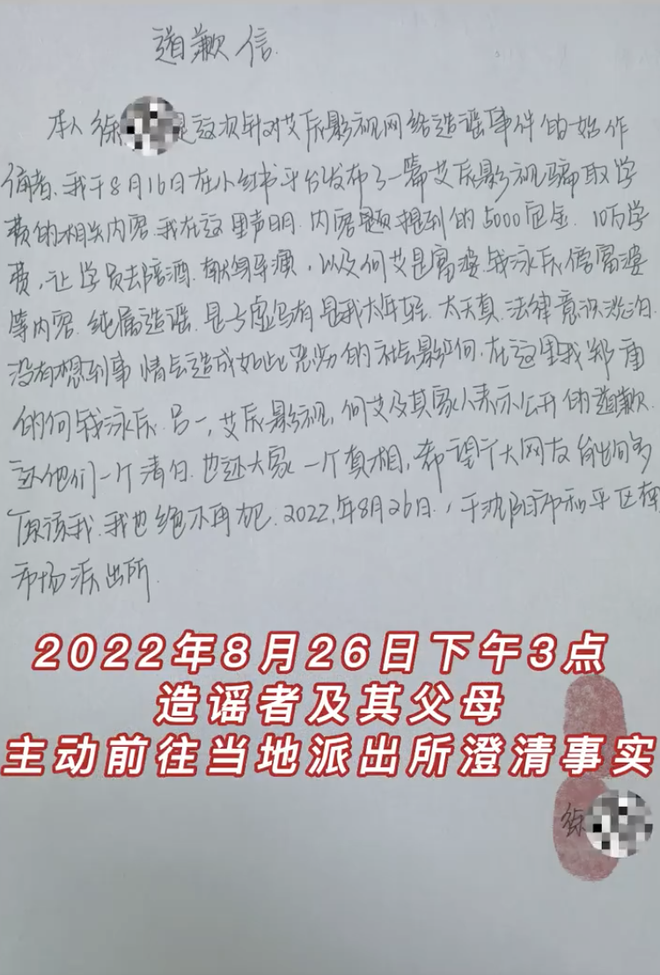 道歉信
本人徐 是这次针对艾辰影视网络造谣事件的始作
俑者、我于8月16日在小红书平台发布了一篇艾辰影视骗取学
费的相关内容.我在这里声明.内容题提到的5000定金.10万学
费,让学员去陪酒.献身导演,以及何艾是富婆.钱泳辰傍富婆
等内容.纯属造谣.是子虚乌有是我太年轻.太天真.法律意识淡泊.
没有想到事情会造成如此恶劣的社会影响.在这里我郑重
的向钱泳辰.吕一,艾辰影视,何艾及其家人表示公开的道歉.
还他们一个清白.也还大家一个真相,希望广大网友
原谅我.我也绝不再犯.2022年8月26日,于沈阳市和平区
市场派出所.
2022年8月26日下午3点
造谣者及其父母
主动前往当地派出所澄清事实
徐